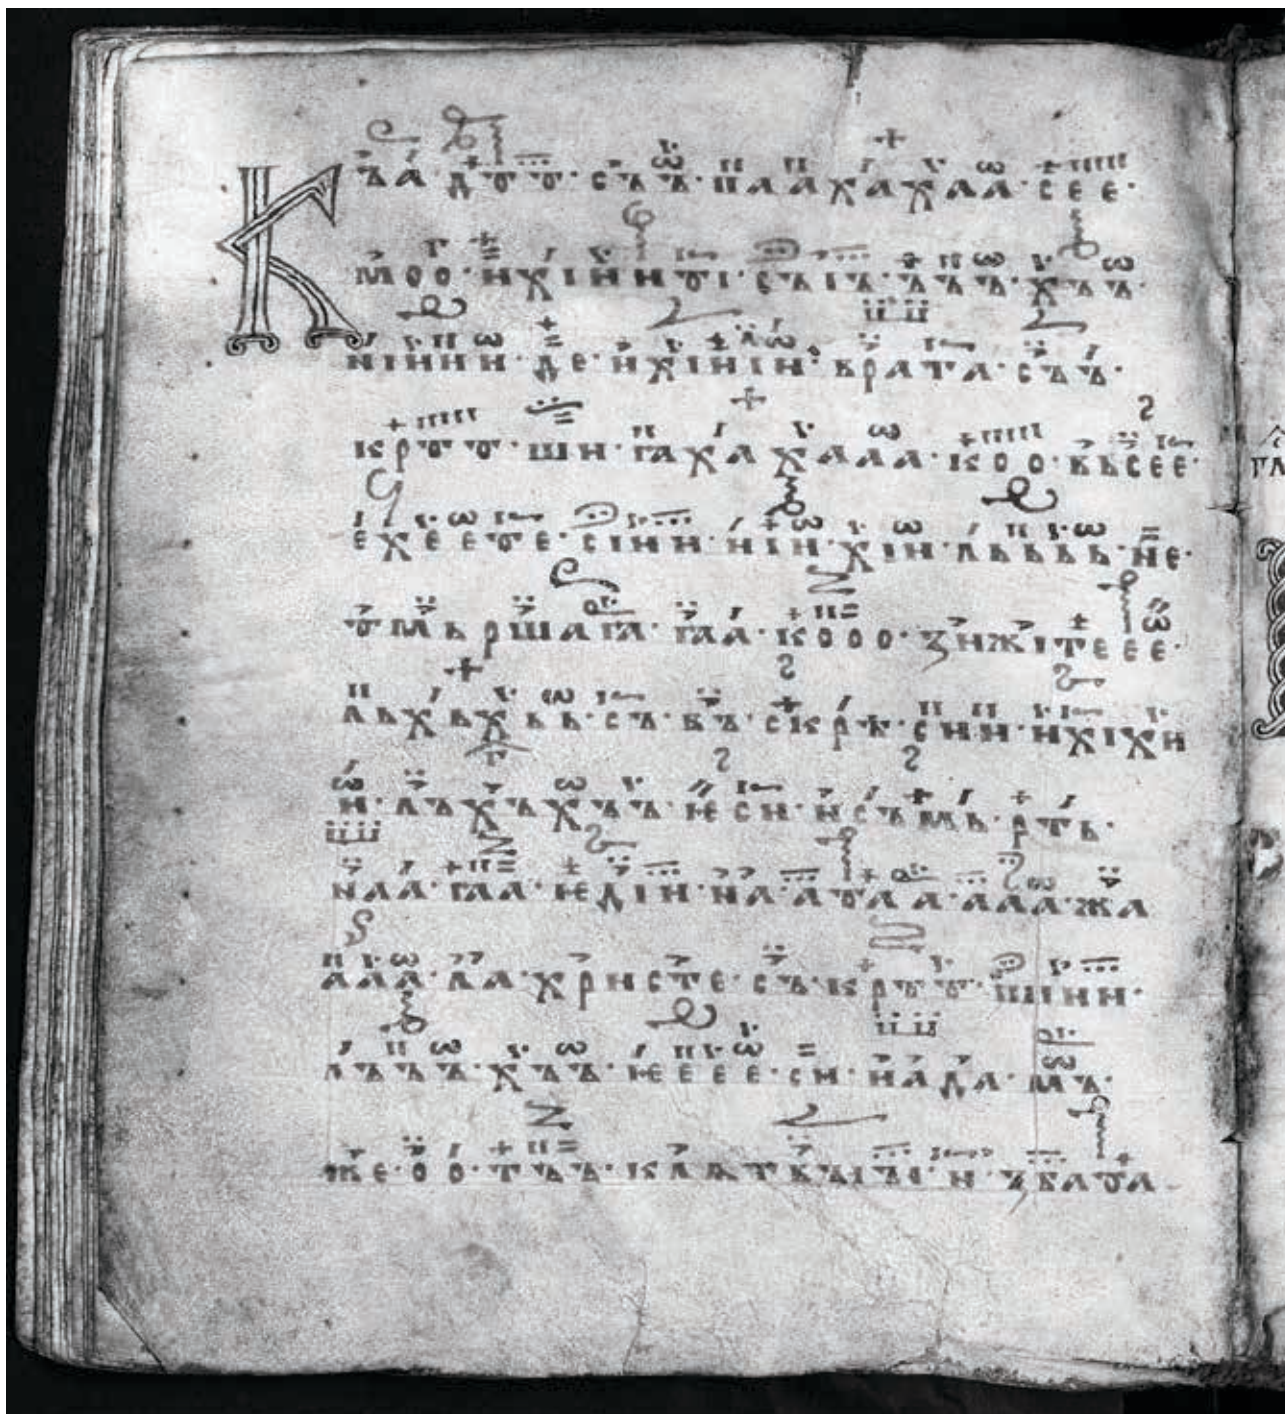 К ЪА·ДОО·СЪЪ·ПЛАХАХАА·СЕЕ·
МОО·ИХІИИОІ·СЪІЪ·ЪЪЪ·ХЪЪ·
НІИИИ·ДЕ·ИХІИІИ·ВРАТА·СЪЪ·
КРОО·ШИ·ꙖХАХААА·КОО·ВЬСЕЕ·
ЕХЕЕОЕ·СІИИ·ИІИ·ХІИ·ЛЬЬЬЬ·НЕ·
ОМЬРШАꙖ·ꙖА·КООО·ЗИЖІТЕЕЕ·
ЛЬХЬХЬЬ·СЪ·ВЪ·СКРѢ·СИИ·ИХІХИ
И·ЛЪХЪХЪЪ·ѤСИ·ИСЪМЬ·РТЬ·
НАА·ꙖА·ѤДІН·НА·АОАА·ААА·ЖА
ААА·ЛА·ХРИСТЕ·СЪ·КРЪЪ·ШІИИ·
ЛЪЪЪ·ХЪЪ·ѤЕЕЕ·СИ·НАДА·МЪ·
ЖЕ·ОО·ТЪЪ·КЛѦТВЫЪІ·И·ЗБАОА